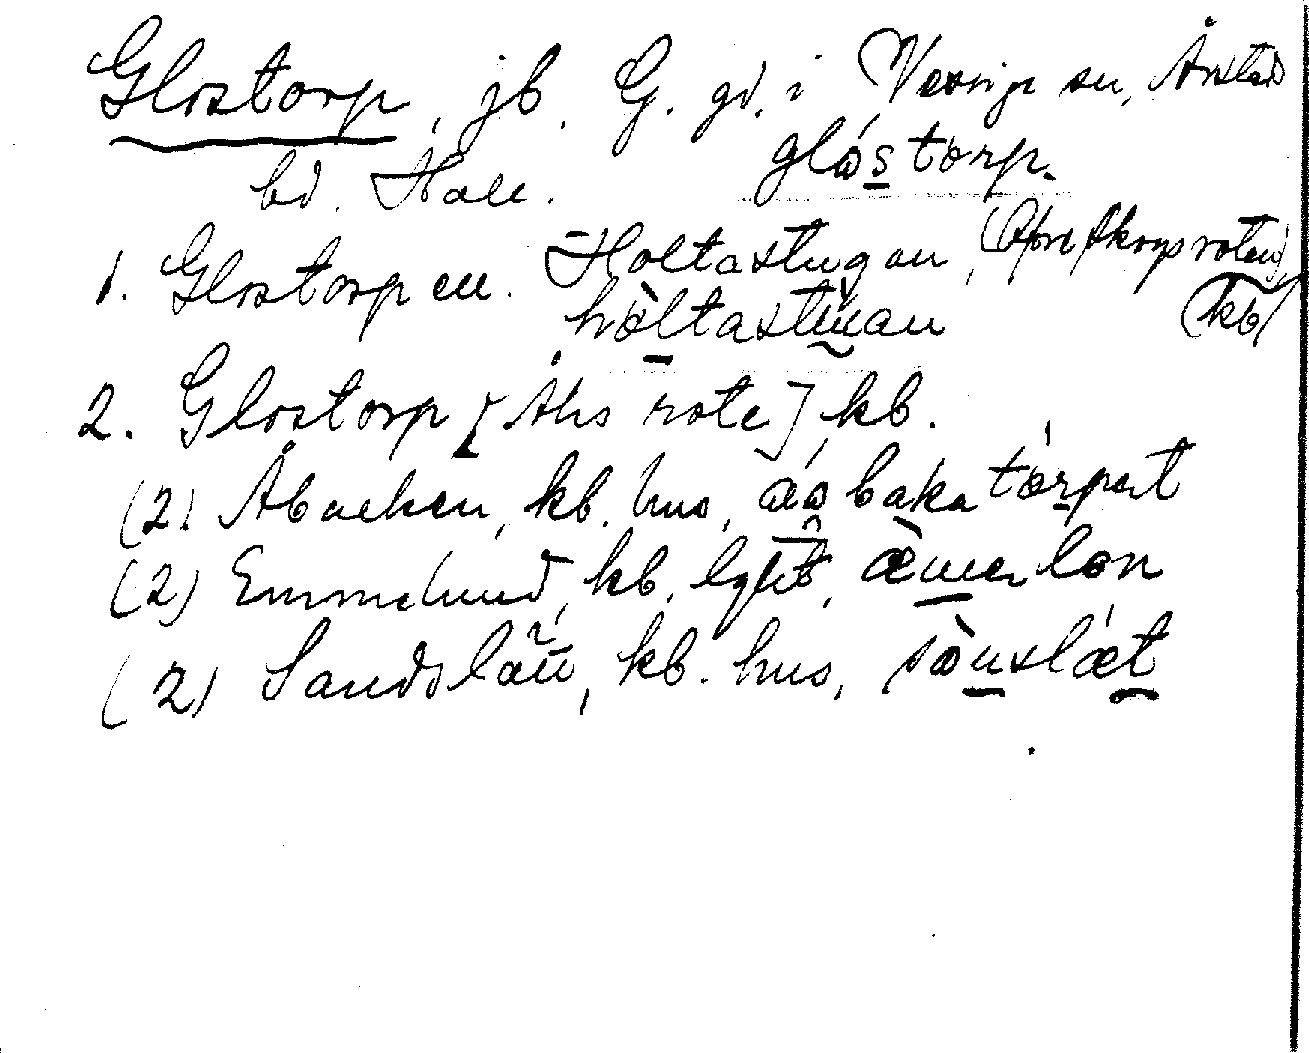 Glostorp, jb. G. gd. i Vessige sn, Årstad
bd. Hall. glåstorp.
1. Glostorpen. Holtastugan, (Öfre skogsroten)
hòltastùan (kb)
2. Glostorp [Åhs rote], kb.
(2) Åbacken, kb. hus, åsbaka torpet
(2) Emmelund, kb. lght, æ̀melon
(2) Sandslätt, kb. hus, sànslæt